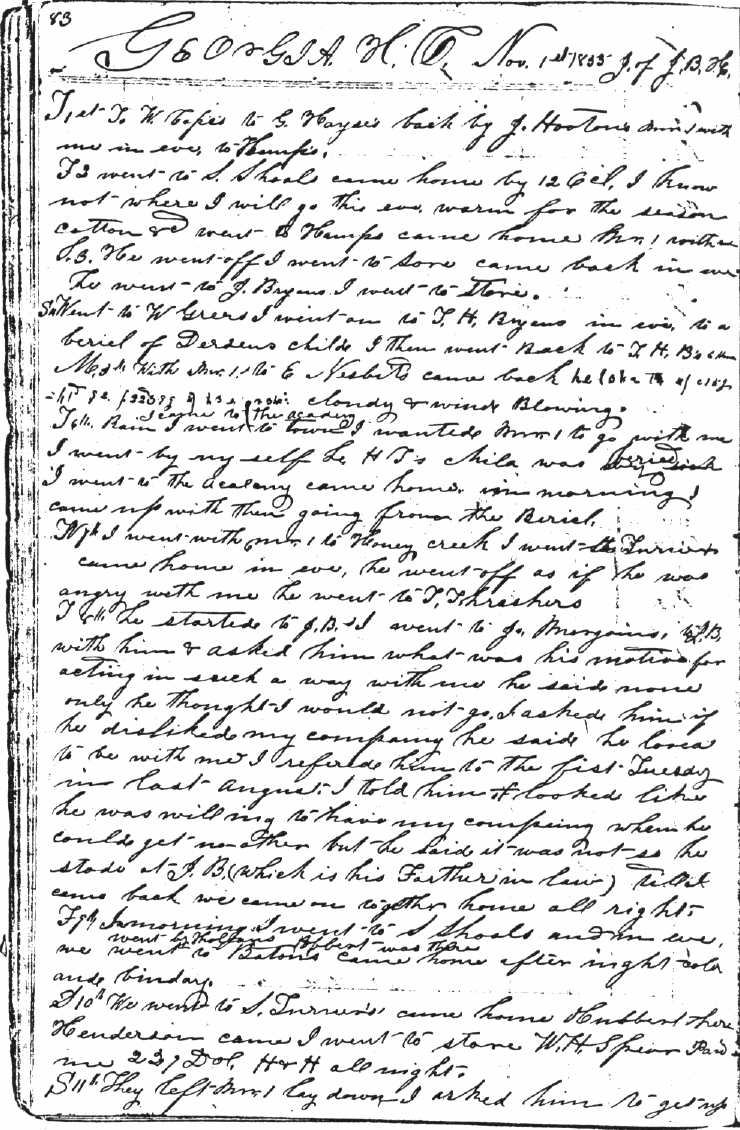 83
GEORGIA H. C. Nov. 1st 1855 J. of J. B. H.
T 1st To W. to G. Hayse's back by J. Hooton's Mr. 1 with
me in eve, to Hemp's.
F 2 went to S. Shoals came home by 12 Ocl, I know
not where I will go this eve, warm for the season
cotton &c went to Hemps came home Mr. 1 with me
S. 3. He went off I went to Sore came back in eve
he went to J. Bryans I went to store.
Su Went to W Greers I went on to T. H. Bryans in eve, to a
beriel of Dersens childs I then went back to T. H. B's
M. 5th With Mr. 1. to E Nesbits came back he
cloudy & winds Blowing.
I came to the academy
T 6th. Rain I went to town I wanted Mr. 1 to go with me
I went by my self L. H T's child was beried
I went to the academy came home. in morning I
came up with them going from the Beriel.
W 7th I went with Mr. 1 to Honey creek I went to Turners
came home in eve, he went off as if he was
angry with me he went to T. Thrashers
T 8th. he started to J. B.'s I went to Jo, Morgains, to J. B.
with him & asked him what was his motive for
acting in such a way with me he said none
only he thought I would not go, I asked him if
he disliked my company he said he loved
to be with me I refered him to the fist Tuesday
in last August I told him it looked like
he was willing to have my compeing when he
could get no other but he said it was not so he
stade at J. B. (which is his Farther in law) till I
came back we came on together home all right.
F 9th In morning I went to S Shoals and in eve,
went by Hollans Hubbert was there
we went to Batons came home after night cold
and binday.
S 10th We went to S. Turner's came home Hubbert there
Henderson came I went to store W. H. Spear Paid
me 237 Dol, H & H all night.
S 11th. They left Mr. 1 lay down I asked him to get up